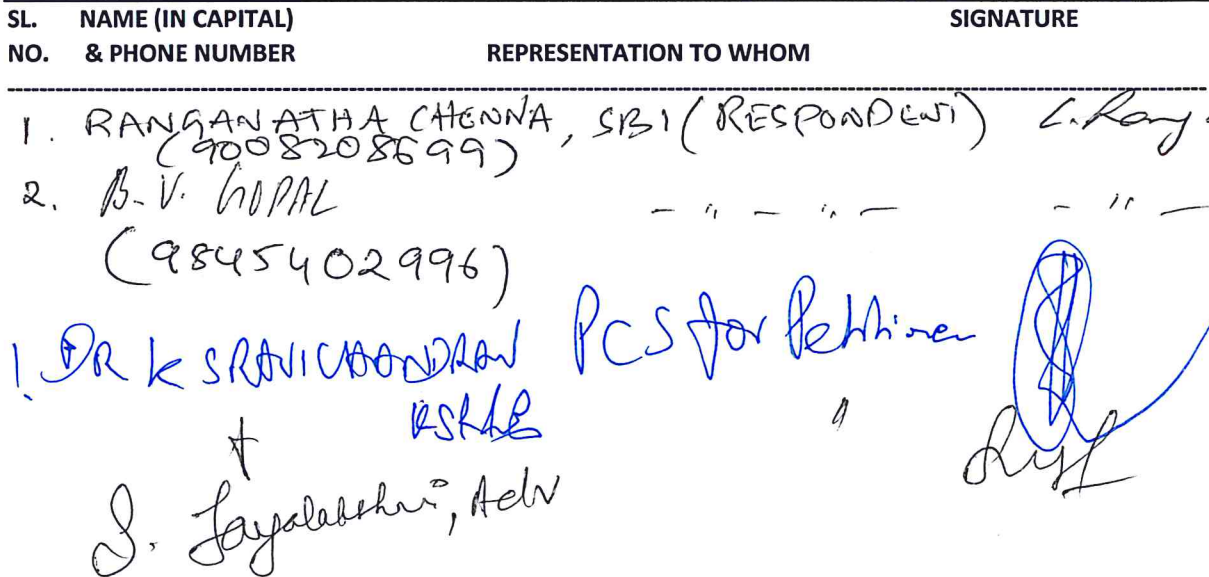 SL. NAME (IN CAPITAL) SIGNATURE
NO. & PHONE NUMBER REPRESENTATION TO WHOM
1. RANGANATHA CHENNA, SBI (RESPONDENT) C. Rang.
(9008208699)
2. B.V. GOPAL - " - " - - " -
(98454 02996)
1 DR K S RAVICHANDRAN PCS for Petitioner
KSR&
+ "
S. Jayalakshmi, Adv